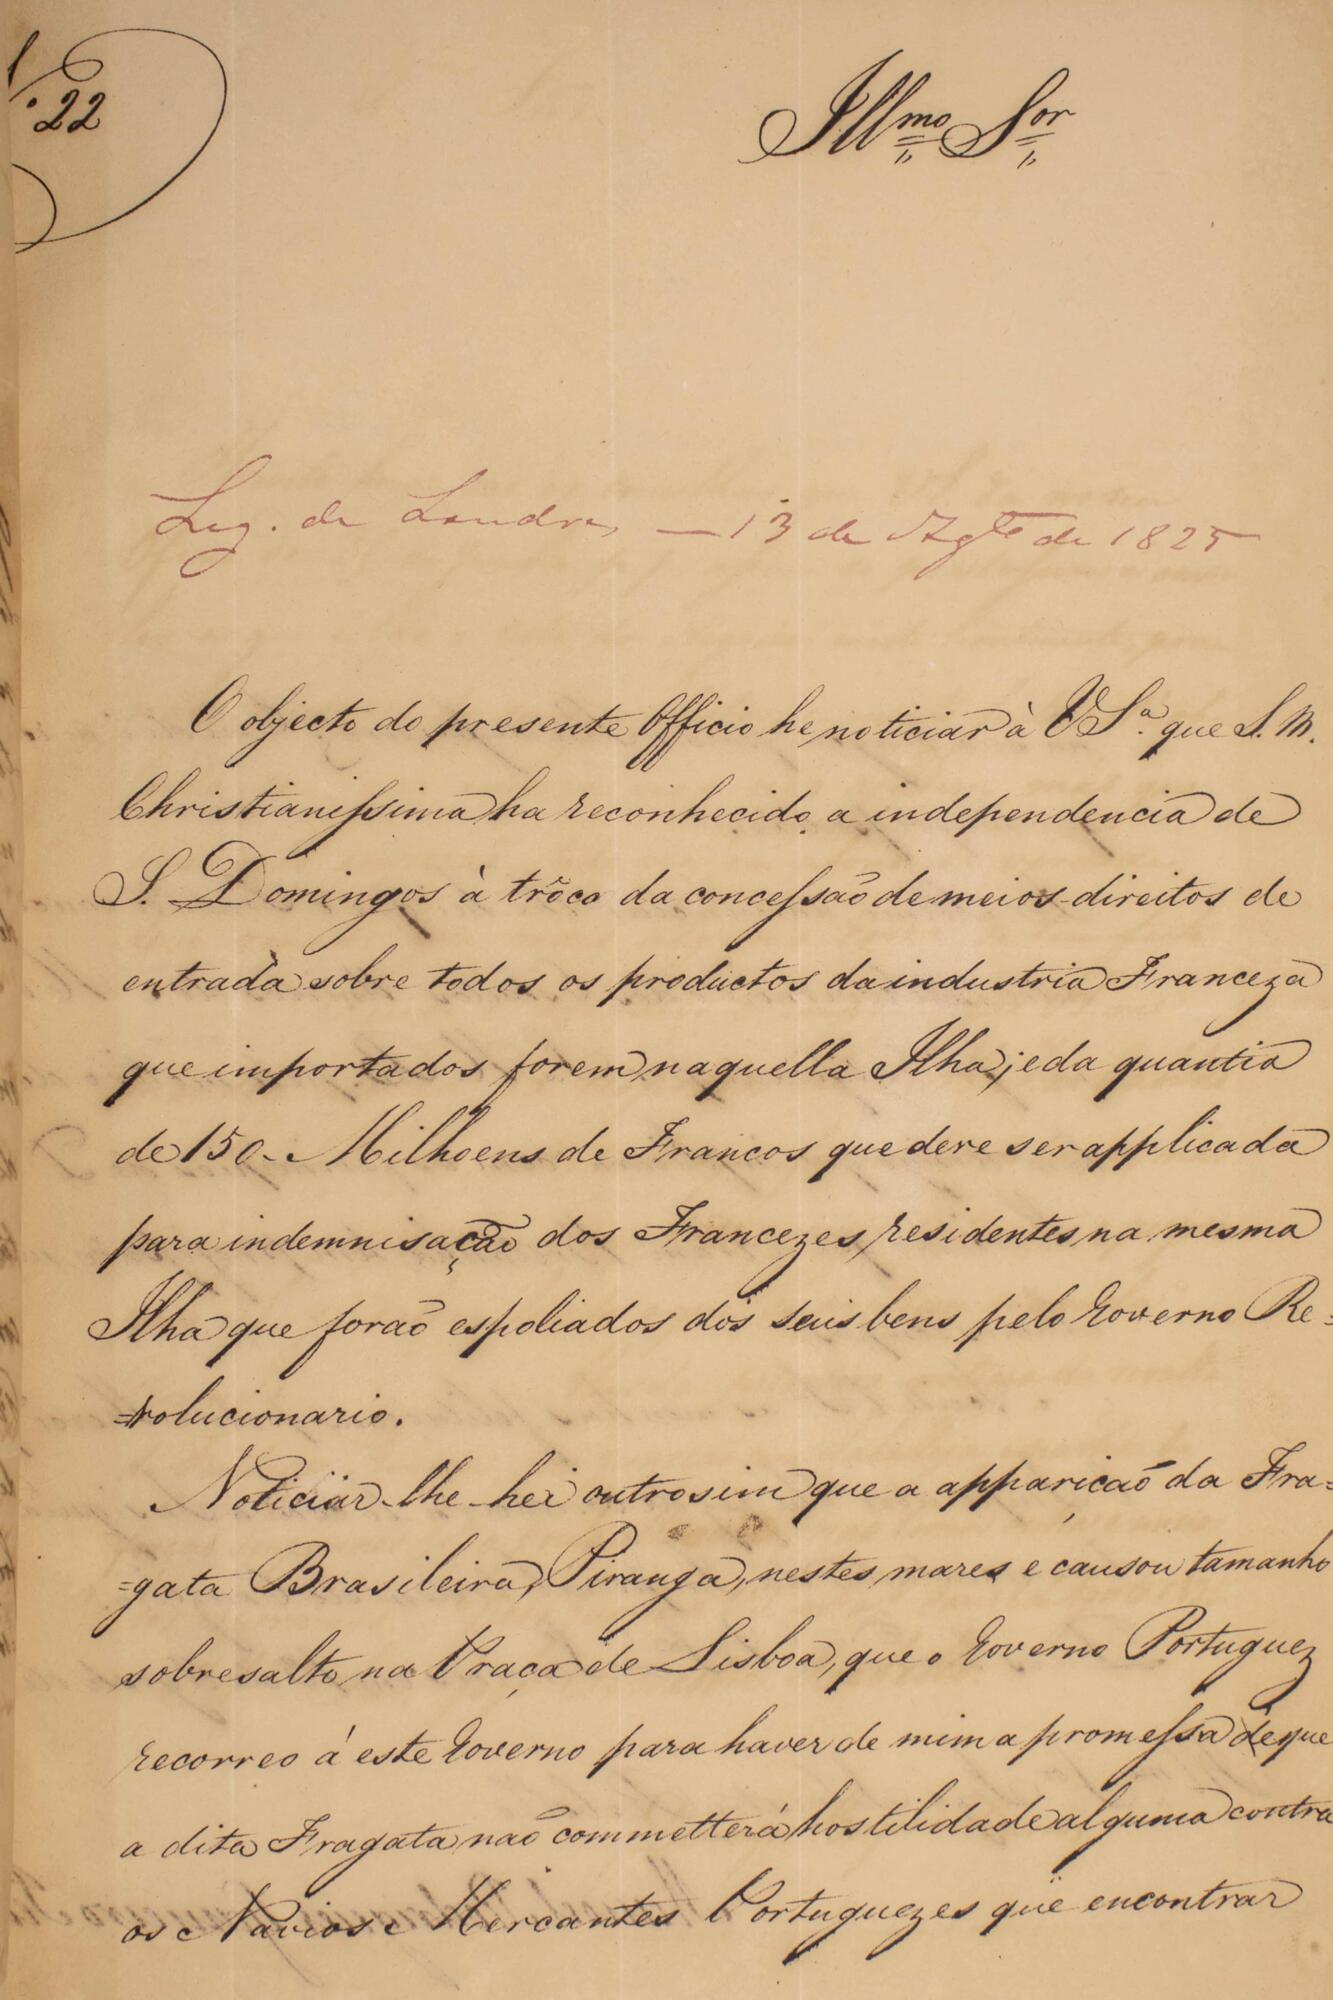 22
Illmo Sor
Leg. de Londres — 13 de Agto de 1825
O objecto do presente Officio he noticiar à VSa. que S. M.
Christianissima ha reconhecido a independencia de
S. Domingos à trôco da concessão de meios direitos de
entrada sobre todos os productos da industria Franceza
que importados forem naquella Ilha; e da quantia
de 150 Milhoens de Francos que deve ser applicada
para indemnisação dos Francezes residentes na mesma
Ilha que forão espoliados dos seus bens pelo Governo Re=
=volucionario.
Noticiar-lhe-hei outrosim que a apparicão da Fra=
=gata Brasileira, Piranga, nestes mares e causou tamanho
sobresalto na Praça de Lisboa, que o Governo Portuguez
recorreo á este Governo para haver de mim a promessa de que
a dita Fragata não commetterá hostilidade alguma contra
os Navios Mercantes Portuguezes que encontrar